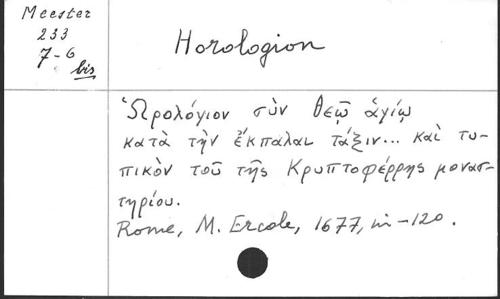 Meester
233
7-6
bis
Horologion
Ὡρολόγιον σὺν θεῷ ἁγίῳ
κατὰ τὴν ἔκπαλαι τάξιν... καὶ τυ-
πικὸν τοῦ τῆς Κρυπτοφέρρης μονασ-
τηρίου.
Rome, M. Ercole, 1677, in-12o.